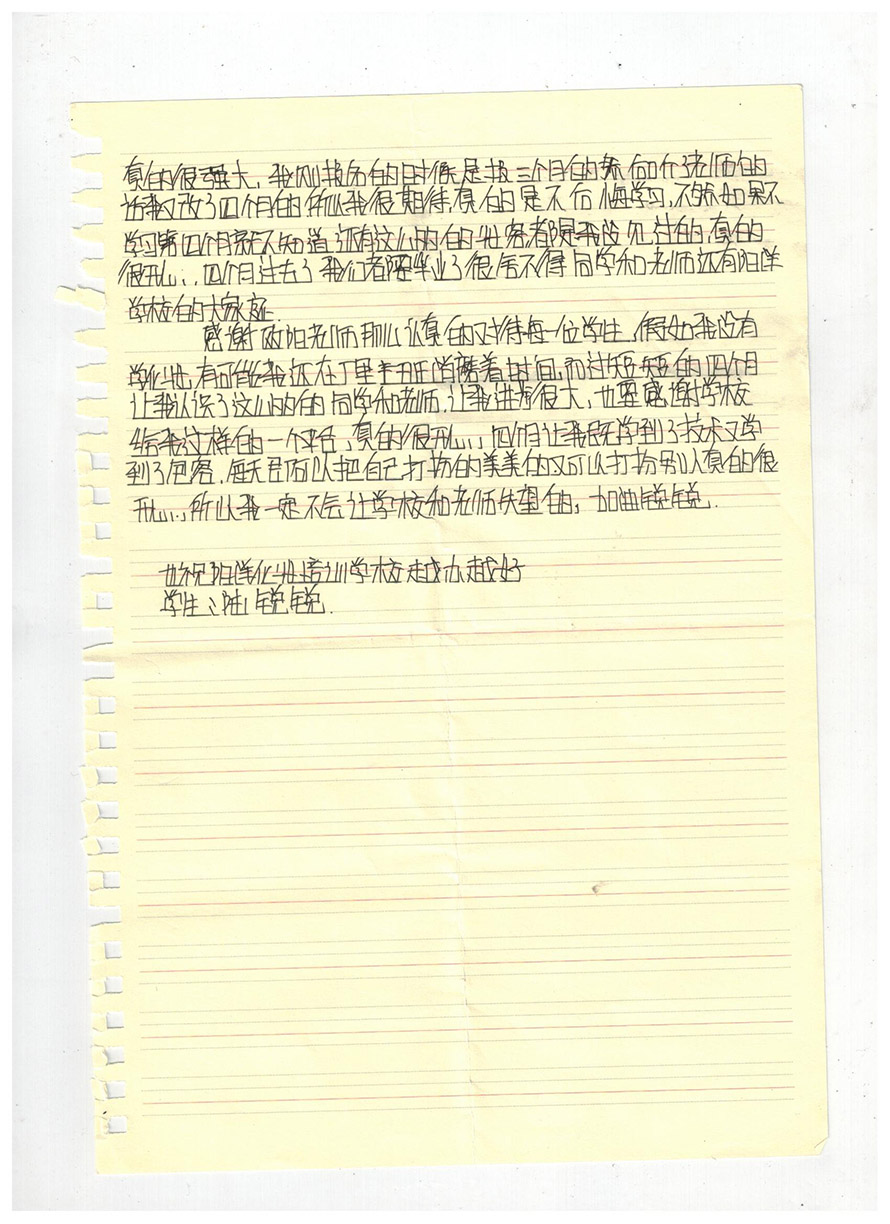 真的很强大，我刚报名的时候是报三个月的然后听了老师的
话我又改了四个月的所以我很期待，真的是不后悔学习，不然如果不
学习第四个月就不知道还有这么多的妆容都是我没见过的，真的
很开心，四个月过去了我们都要毕业了很舍不得同学和老师还有阳洋
学校的大家庭
感谢欧阳老师那么认真的对待每一位学生，假如我没有
学化妆有可能我还在厂里手开消磨着时间，而过短短的四个月
让我认识了这么多的同学和老师，让我进步很大，也要感谢学校
给我这样的一个平台，真的很开心，四个月让我既学到了技术又学
到了包容，每天都可以把自己打扮的美美的又可以打扮别人真的很
开心，所以我一定不会让学校和老师失望的，加油锐锐．
也祝阳洋化妆培训学校越办越好
学生：陆锐锐．